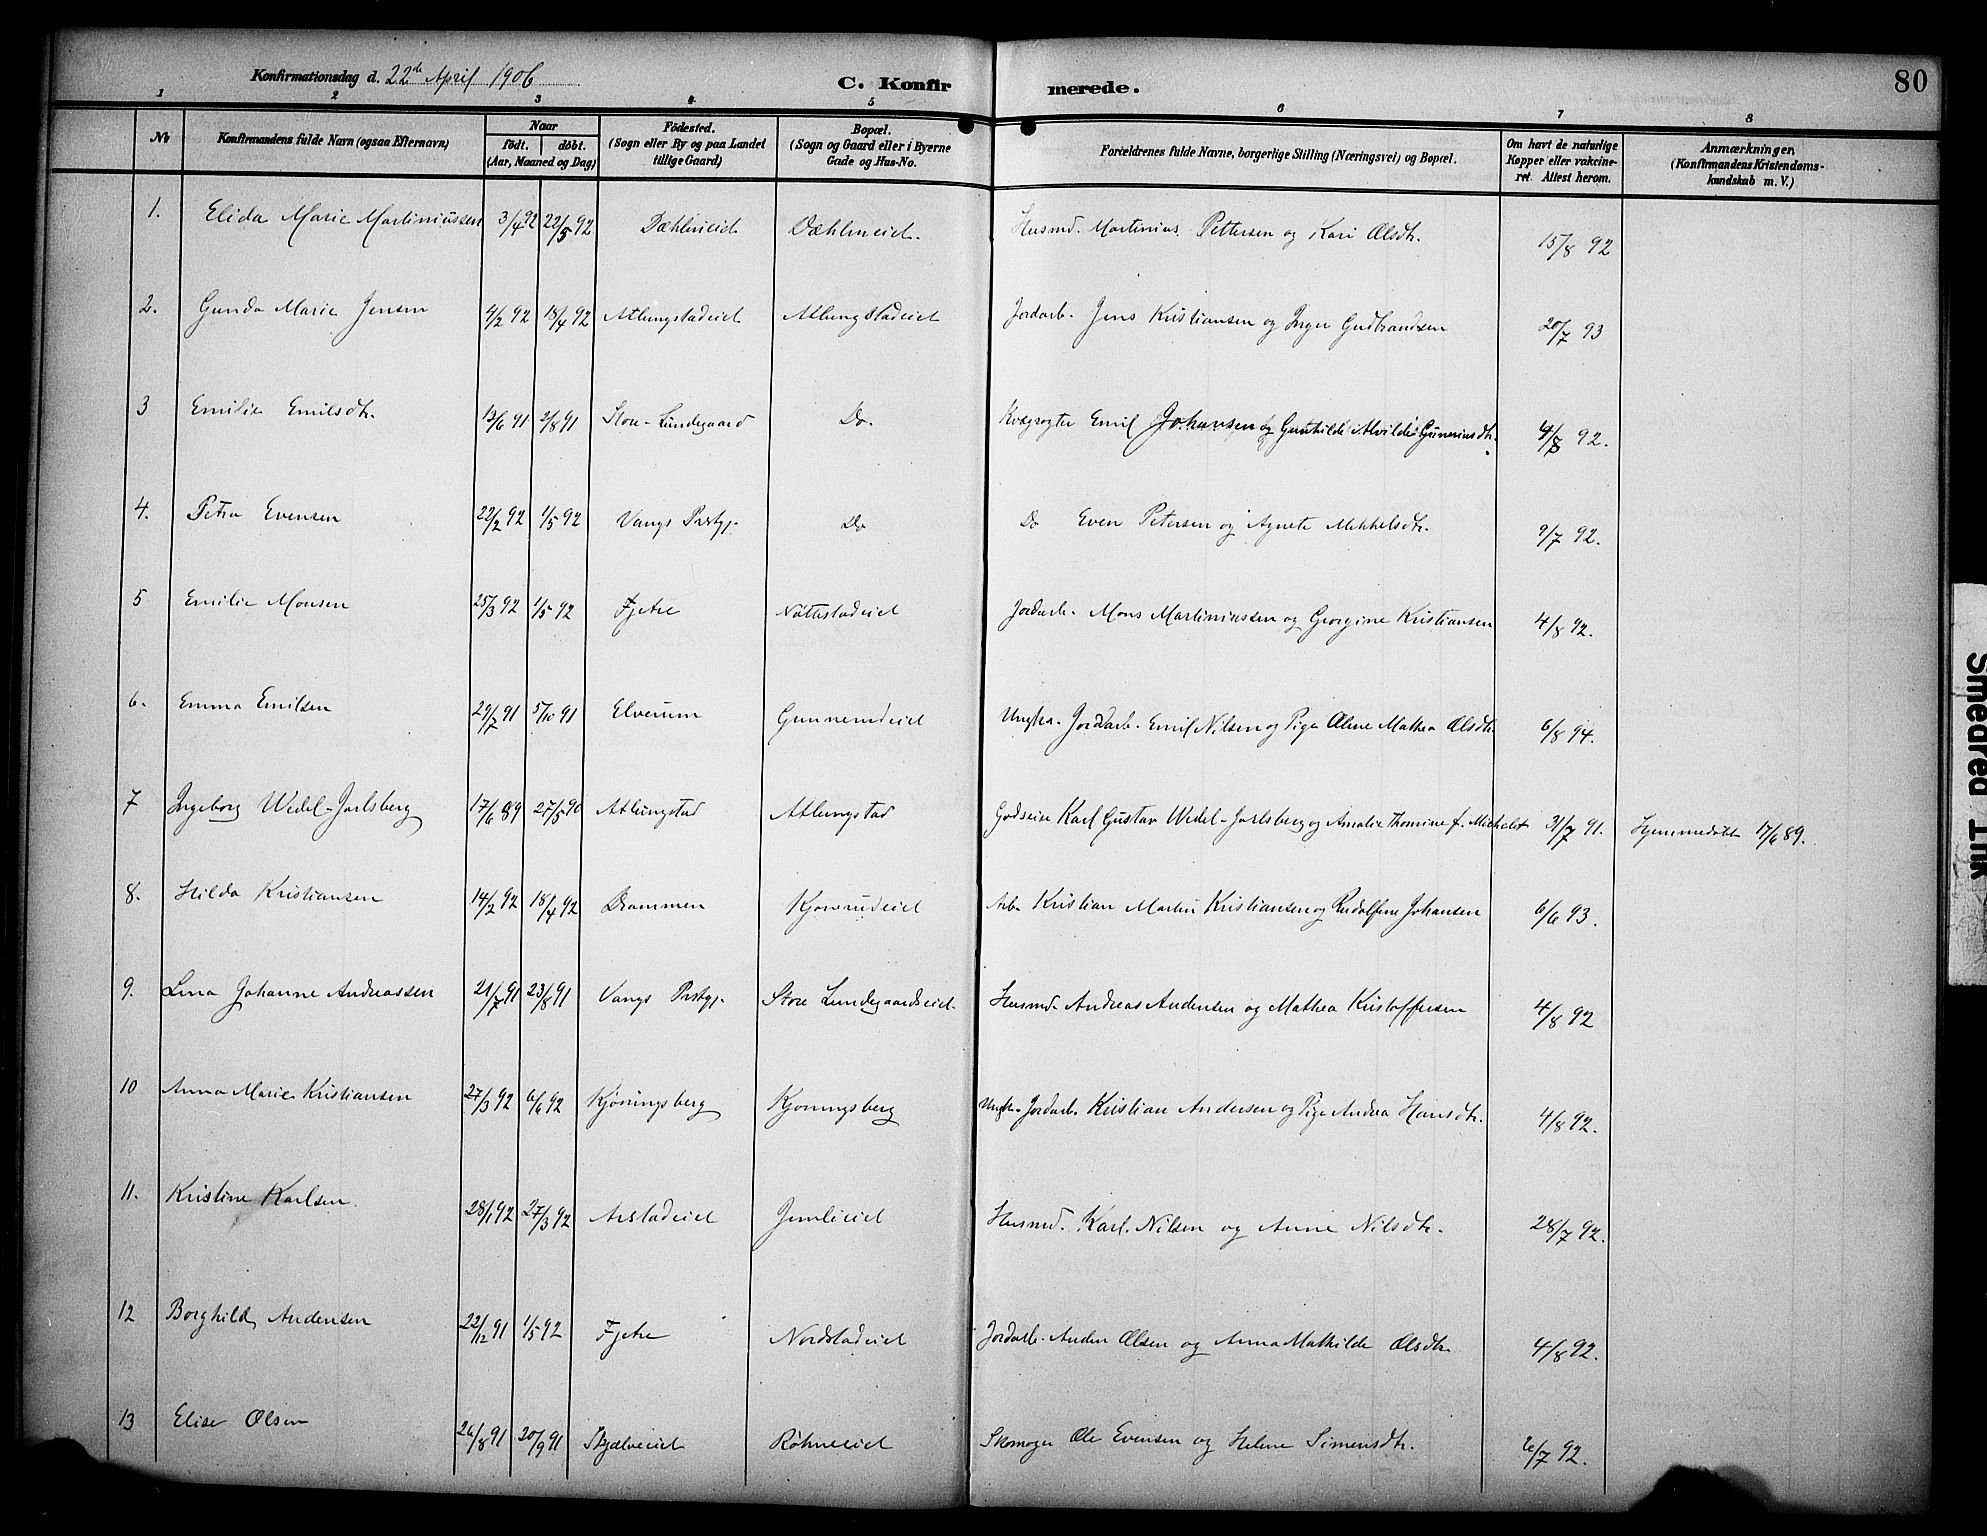 Konfirmationsdag d. 22de April 1906
C. Konfirmerede.
80
1 2 3 4 5 6 7 8
No
Konfirmandens fulde Navn (ogsaa Efternavn)
Naar
födt. döbt.
(Aar, Maaned og Dag)
Födested.
(Sogn eller By og paa Landet tillige Gaard)
Bopæl.
(Sogn og Gaard eller i Byerne Gade og Hus-No.
Forældrenes fulde Navne, borgerlige Stilling (Næringsvei) og Bopæl.
Om havt de naturlige Kopper eller vakcineret. Attest herom.
Anmærkninger.
(Konfirmandens Kristendomskundskab m. V.)
1. Elida Marie Martiniussen 3/4 92 22/5 92 Dæhlineiet Dæhlineiet. Husmd. Martinius Pettersen og Kari Olsdtr. 15/8 92
2. Gunda Marie Jensen 4/2 92 18/4 92 Atlungstadeiet Atlungstadeiet Jordarb. Jens Kristiansen og Inger Gudbrandsen 20/7 93
3 Emilie Emilsdtr. 13/6 91 2/8 91 Store-Lundegaard Do. Kvægrøgter Emil Johansen og Gunhilde Alvilde Gunerius dtr. 4/8 92.
4. Petra Evensen 22/2 92 1/5 92 Vangs Prstgj. Do Do Even Petersen og Agnete Mikkelsdtr. 9/7 92.
5 Emilie Monsen 25/3 92 1/5 92 Fjetre Nøttestadeiet Jordarb. Mons Martiniussen og Georgine Kristiansen 4/8 92.
6. Emma Emilsen 29/7 91 5/10 91 Elverum Gunnerudeiet Ungkr. Jordarb. Emil Nilsen og Pige Oline Mathea Olsdtr. 6/8 94.
7 Ingeborg Wedel-Jarlsberg 17/6 89 27/5 90 Atlungstad Atlungstad Godseier Karl Gustav Wedel-Jarlsberg og Amalie Thomine f. Michelet 31/7 91. Hjemmedøbt 17/6 89.
8. Hilda Kristiansen 14/2 92 18/4 92 Drammen Kjorrudeiet Arb. Kristian Martin Kristiansen og Rudolfine Johansen 6/6 93.
9. Lina Johanne Andreassen 21/7 91 23/8 91 Vangs Prstgj. Store Lundegaardseiet. Husmd. Andreas Andersen og Mathea Kristoffersen 4/8 92
10 Anna Marie Kristiansen 27/3 92 6/6 92 Kjøningsberg Kjøningsberg Ungkr. Jordarb. Kristian Andersen og Pige Andrea Hansdtr. 4/8 92.
11. Kristine Karlsen. 28/1 92 27/3 92 Arstadeiet Jemlieiet Husmd. Karl Nilsen og Anne Nilsdtr. 28/7 92.
12 Borghild Andersen 22/12 91 1/5 92 Fjetre Nordstadeiet Jordarb. Anders Olsen og Anna Mathilde Olsdtr. 4/8 92.
13 Elise Olsen 26/8 91 20/9 91 Skjelveeiet Røhneeiet Skomager Ole Evensen og Helene Simensdtr. 6/7 92.